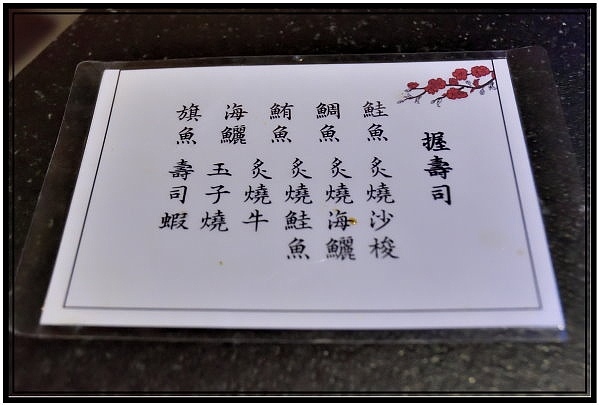 握壽司
鮭魚
鯛魚
鮪魚
海鱺
旗魚
炙燒沙梭
炙燒海鱺
炙燒鮭魚
炙燒牛
玉子燒
壽司蝦